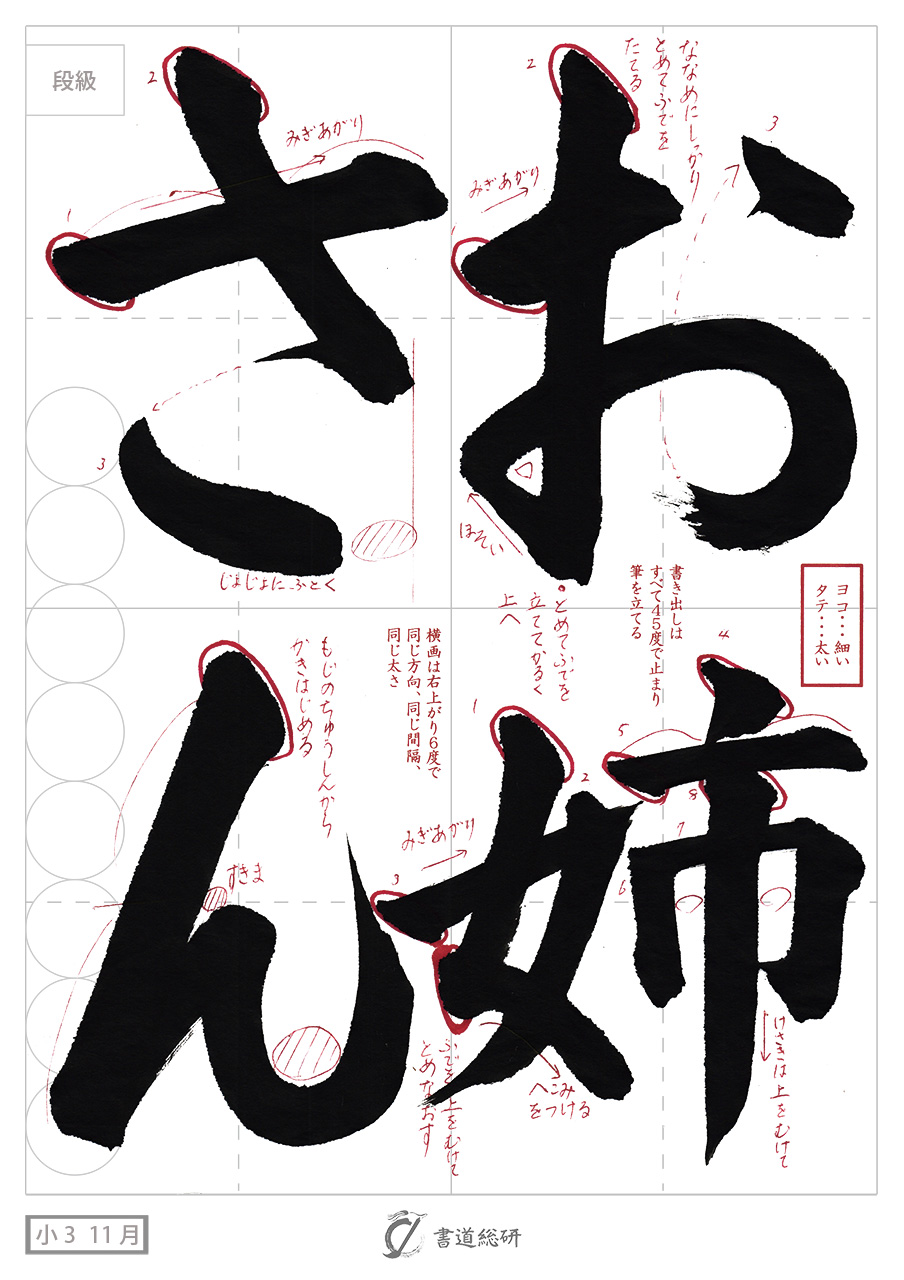 お姉
さん
段級
2
ななめにしっかり
とめてふでを
たてる
3
みぎあがり
1
ほそい
とめてふでを
立ててかるく
上へ
2
みぎあがり
1
3
じょじょにふとく
ヨコ・・・細い
タテ・・・太い
書き出しは
すべて45度で止まり
筆を立てる
横画は右上がり6度で
同じ方向、同じ間隔、
同じ太さ
1
2
3
4
5
6
7
8
みぎあがり
ふでを上をむけて
とめなおす
へこみ
をつける
けさきは上をむけて
もじのちゅうしんから
かきはじめる
すきま
小3 11月
書道総研